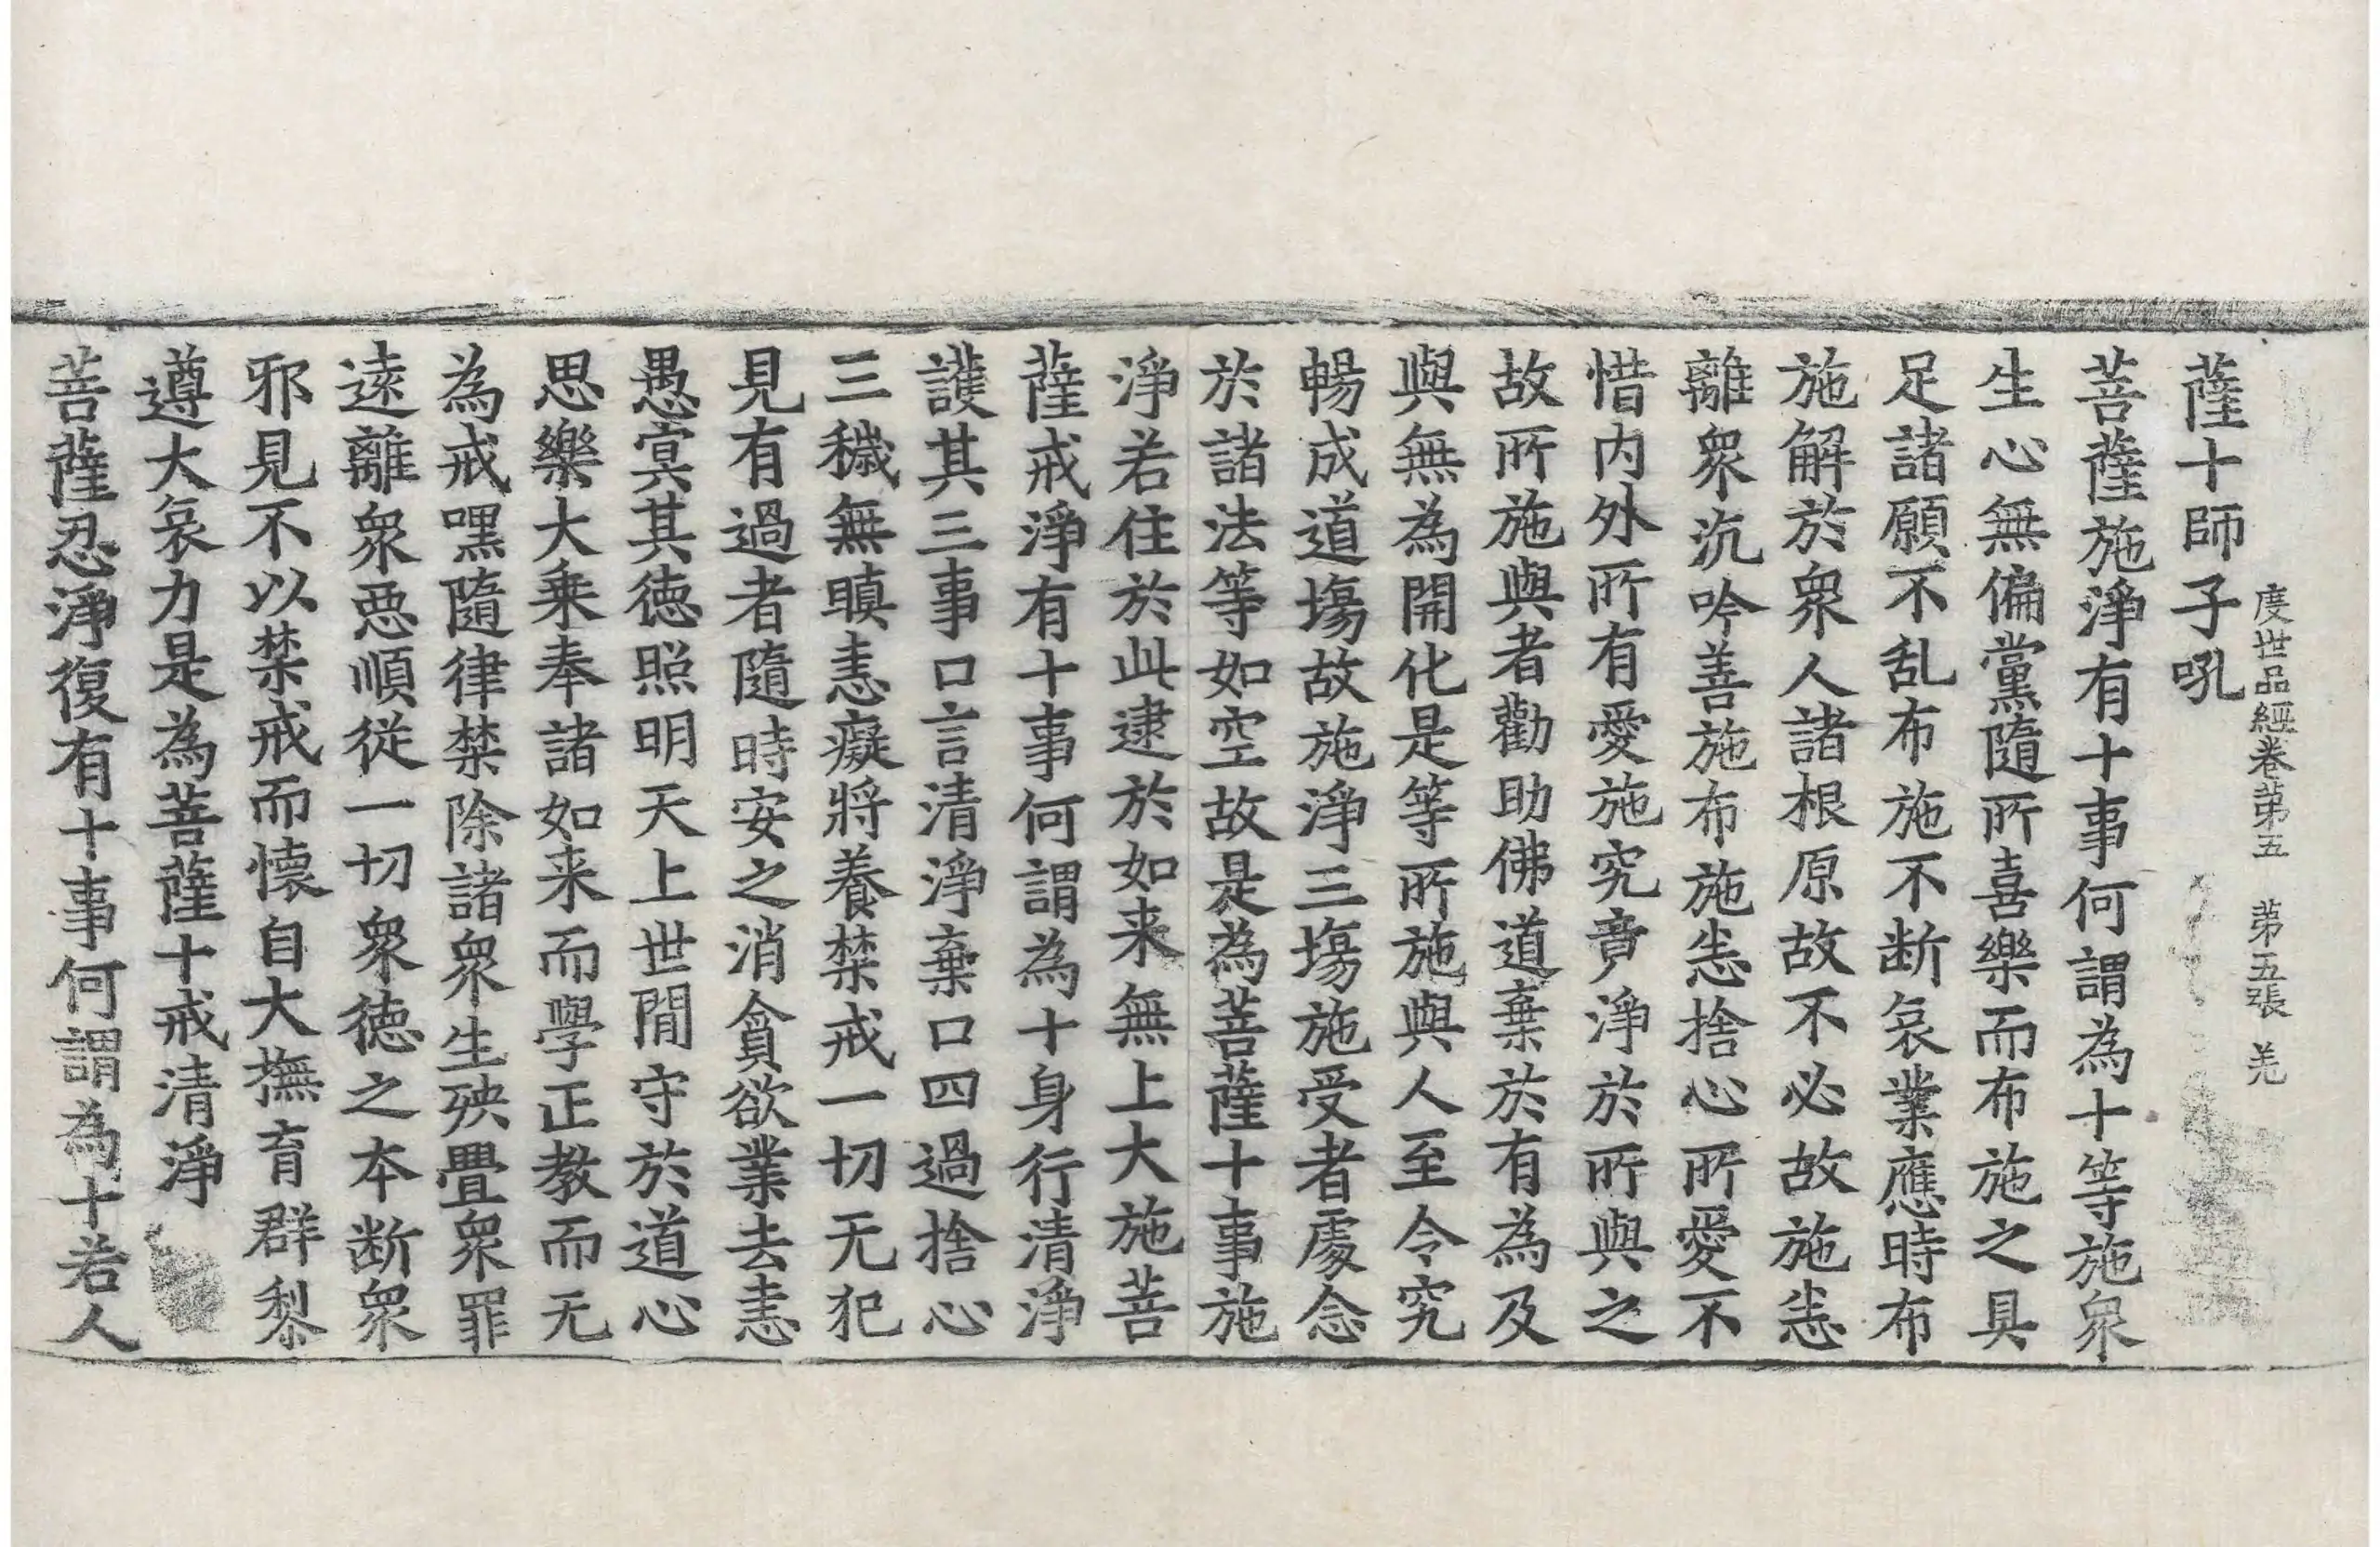 度世品經卷第五　第五張　羌
薩十師子吼
菩薩施淨有十事何謂為十等施衆
生心無偏黨隨所喜樂而布施之具
足諸願不乱布施不断哀業應時布
施解於衆人諸根原故不必故施恚
離衆沉吟善施布施恚捨心所愛不
惜内外所有愛施究竟淨於所與之
故所施與者勸助佛道棄於有為及
與無為開化是等所施與人至令究
暢成道塲故施淨三塲施受者處念
於諸法等如空故是為菩薩十事施
淨若住於此逮於如来無上大施菩
薩戒淨有十事何謂為十身行清淨
護其三事口言清淨棄口四過捨心
三穢無瞋恚癡將養禁戒一切无犯
見有過者隨時安之消貪欲業去恚
愚冥其徳照明天上世間守於道心
思樂大乗奉諸如来而學正教而无
為戒嘿隨律禁除諸衆生殃疊衆罪
逺離衆惡順従一切衆徳之本断衆
邪見不以禁戒而懐自大撫育群黎
遵大哀力是為菩薩十戒清淨
菩薩忍淨復有十事何謂為十若人